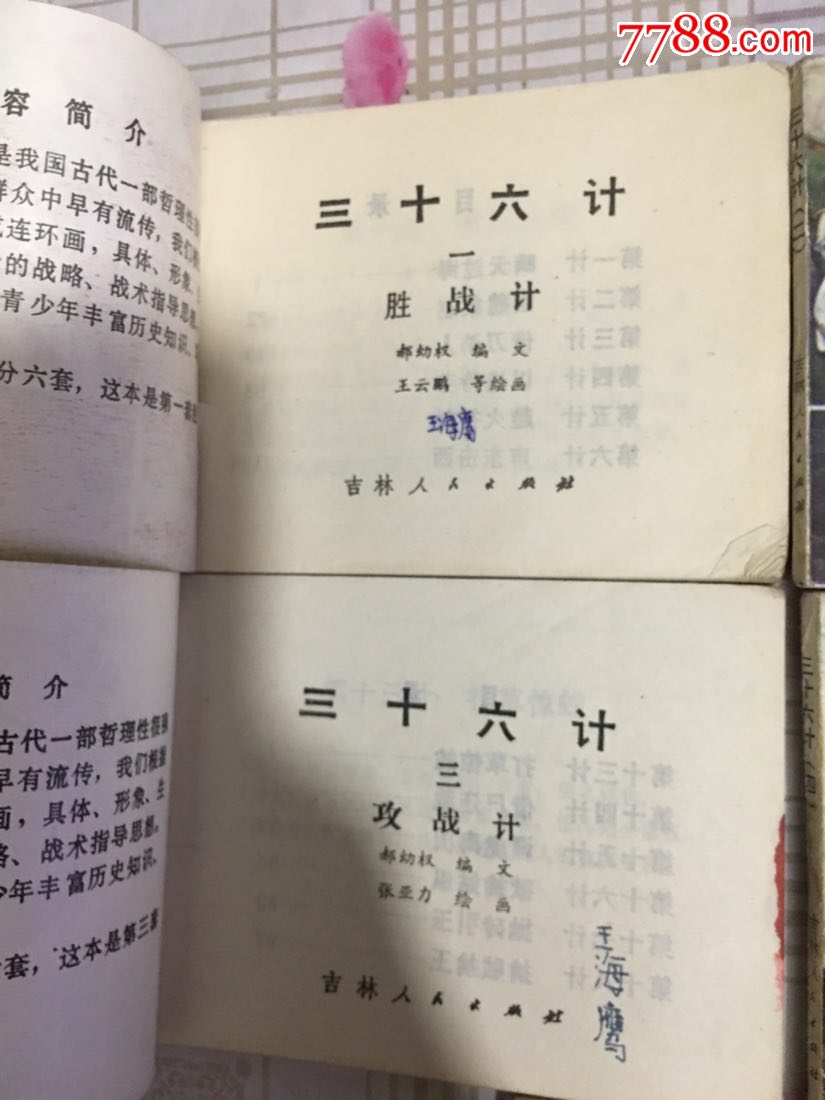 7788.com
容 简 介
是我国古代一部哲理性
群众中早有流传，我们
连环画，具体、形象、
的战略、战术指导思想
青少年丰富历史知识、
分六套，这本是第一套
三十六计
一
胜战计
郝幼权 编 文
王云鹏 等绘画
王海鹰
吉林人民出版社
三十六计(二)
吉林人民出版社
简 介
古代一部哲理性很强
早有流传，我们根据
画，具体、形象、生
略、战术指导思想。
少年丰富历史知识、
套，这本是第三套
三十六计
三
攻战计
郝幼权 编 文
张亚力 绘 画
王海鹰
吉林人民出版社
三十六计(四)
吉林人民出版社